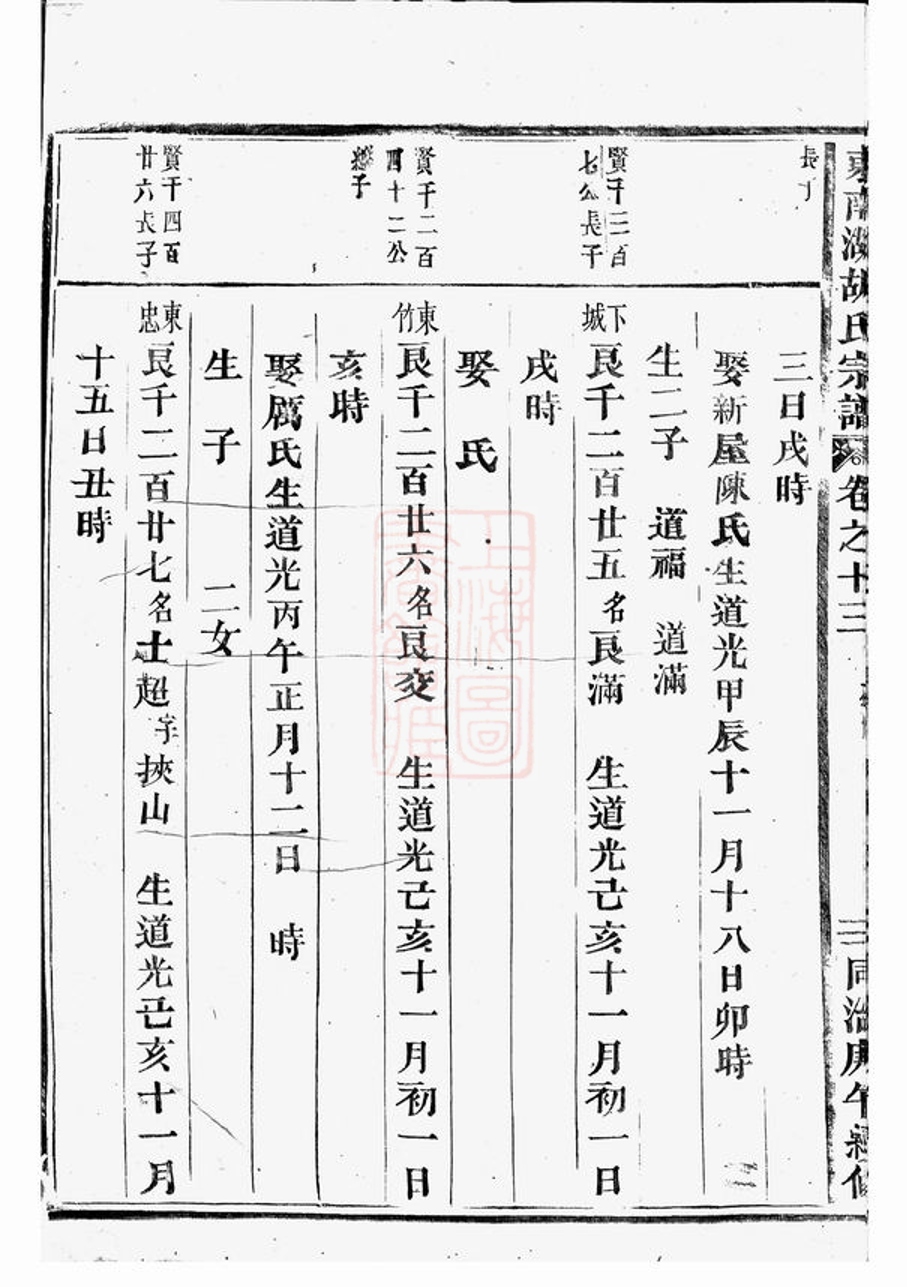 東南湖胡氏宗譜 卷之十三 同治庚午經修
長子
三日戌時
娶新屋陳氏生道光甲辰十一月十八日卯時
生二子 道福 道滿
賢千三百
七公長子
下城
良千二百廿五名良滿 生道光己亥十一月初一日
戌時
娶 氏
賢千二百
四十二公
繼子
東竹
良千二百廿六名良交 生道光己亥十一月初一日
亥時
娶厲氏生道光丙午正月十二日 時
生 子 二女
賢千四百
廿六長子
東忠
良千二百廿七名士超字挾山 生道光己亥十一月
十五日丑時
上海圖
書館藏